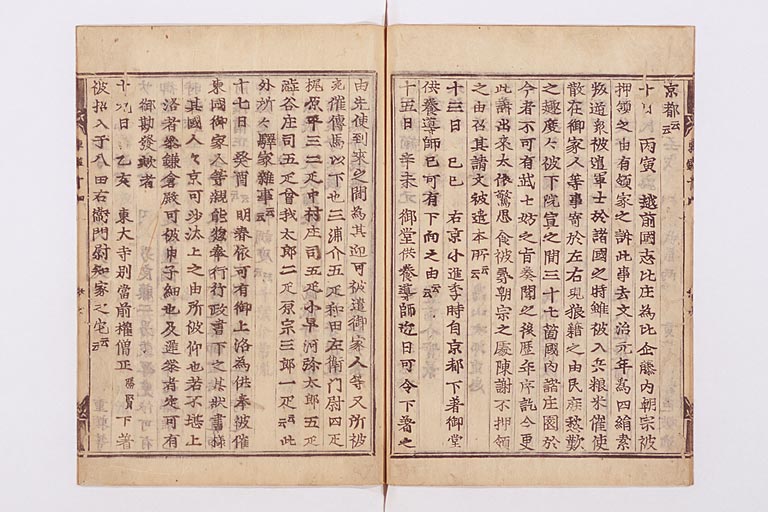 京都云云
十日 丙寅 越前國志比庄為比企藤内朝宗被
押領之由有領家之訴此事去文治元年為四綃索
叛逆衆被遣軍士於諸國之時雖被入兵粮米催使
散在御家人等事寄於左右現狼藉之由民庶愁歎
之趣度々被下院宣之間三十七箇國内諸庄園於
今者不可有武士妨之旨奏聞之後歴年序訖今更
此訴出來太依驚思食被尋朝宗之處陳謝不押領
之由召其請文被遣本所云云
十三日 己巳 右京小進季時自京都下著御堂
供養導師已可有下向之由云云
十五日 辛未 御堂供養導師迎日可令下著之
由先使到來之間為其迎可被遣御家人等又所被
充催傳馬以下也三浦介五疋和田左衛門尉四疋
梶原平三二疋中村庄司五疋小早河弥太郎五疋
澁谷庄司五疋曾我太郎二疋原宗三郎一疋云云此
外所々驛家雜事云云
十七日 癸酉 明春依可有御上洛為供奉被催
東國御家人等親能 奉行行政書下之其狀書樣
其國人々京可沙汰上之由所被仰也若不堪上
洛者參鎌倉殿可被申子細也及遲參者定可有
御勘發歟者
十九日 乙亥 東大寺別當前權僧正勝賢下著
被招入于八田右衛門尉知家之宅云云
吾妻鏡十四